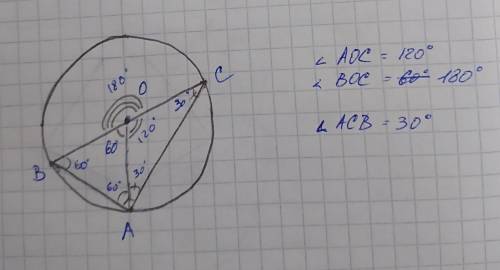 ∠ AOC = 120°
∠ BOC = 60° 180°
∠ ACB = 30°
180°
O
C
30°
60
120°
B
60°
60°
30°
A